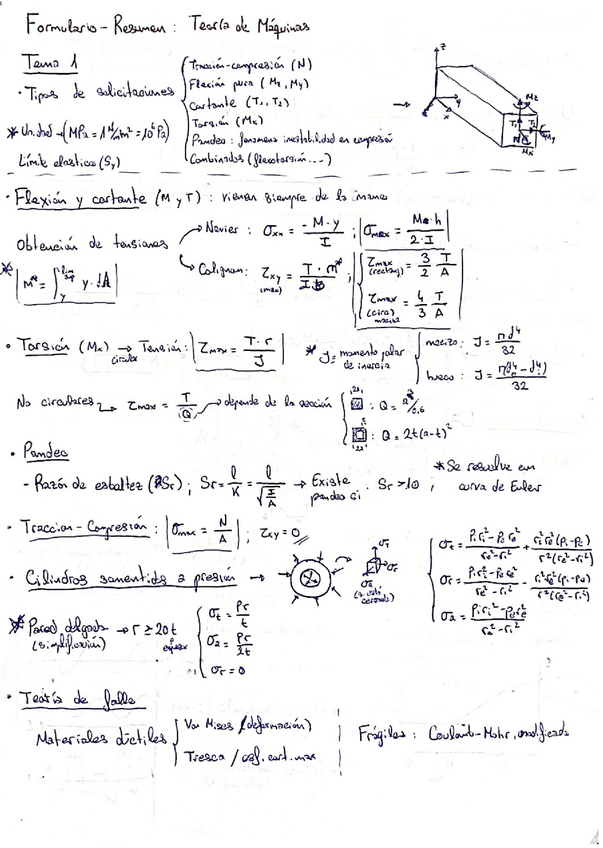 Formulario - Resumen : Teoría de Máquinas
Tema 1
· Tipos de solicitaciones
Tracción-compresión (N)
Flexión pura (Mz, My)
Cortante (T1, T2)
Torsión (Mx)
Pandeo : fenómeno inestabilidad en compresión
Combinados (flexotorsión ...)
* Unidad → (MPa = 1 N/mm² = 10⁶ Pa)
Límite elástico (Sy)
z
y
x
Mz
Mx
My
· Flexión y cortante (M y T) : vienen siempre de la mano
Obtención de tensiones
→ Navier : σxx = -M·y / I ; σmax = M·h / 2·I
→ Colignon : τxy (max) = T·m* / I·B ; τmax (rectang) = 3/2 T/A
τmax (circ) maciza = 4/3 T/A
* M* = ∫ y · dA
· Torsión (Mx) → circular Tensión : τmax = T·r / J
* J = momento polar de inercia
macizo : J = πd⁴ / 32
hueco : J = π(de⁴ - di⁴) / 32
No circulares → τmax = T / Q → depende de la sección
: Q = a³/0,6
: Q = 2t(a-t)²
· Pandeo
- Razón de esbeltez (Sr) ; Sr = l/K = l / √(I/A) → Existe pandeo si Sr > 10 ;
* Se resuelve con curva de Euler
· Traccion - Compresión : σmax = N/A ; τxy = 0
· Cilindros sometidos a presión →
σt
σr
σa
σt = (Pi ri² - Pe re²) / (re² - ri²) + ri² re² (Pi - Pe) / r² (re² - ri²)
σr = (Pi ri² - Pe re²) / (re² - ri²) - ri² re² (Pi - Pe) / r² (re² - ri²)
σa = (Pi ri² - Pe re²) / (re² - ri²)
* Pared delgada → r ≥ 20t
(simplificación)
σt = Pr / t
σa = Pr / 2t
σr = 0
· Teoría de fallo
Materiales dúctiles
Von Mises / (deformación)
Tresca / esf. cort. max
Frágiles : Coulomb-Mohr, modificada